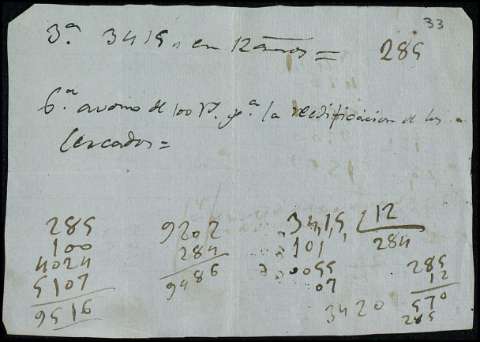 33
3.ª 3415,, en 12 años = 285
6.ª abono de 100 P. p.ª la reedificacion de los
Cercados =
285
100
4024
5107
9516
9202
284
9486
3415, 12
101 284
0055
07
3420
285
12
570
285